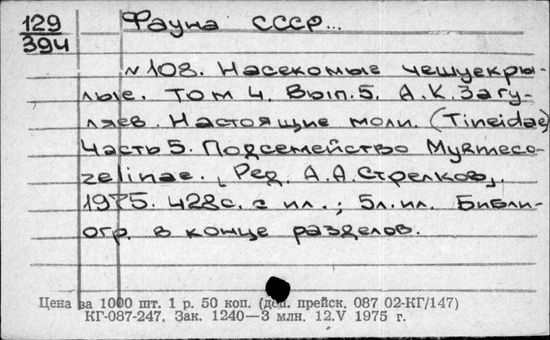 129
394
Фауна СССР...
№ 108. Насекомые чешуекры-
лые. Том 4. Вып. 5. А.К. Загу-
ляев. Настоящие моли. (Tineidae)
Часть 5. Подсемейство Myrmeco-
zelinae. [Ред. А.А. Стрелков],
1975. 428с. с ил.; 5л. ил. Библи-
огр. в конце разделов.
Цена за 1000 шт. 1 р. 50 коп. (доп. прейск. 087 02-КГ/147)
КГ-087-247. Зак. 1240—3 млн. 12.V 1975 г.